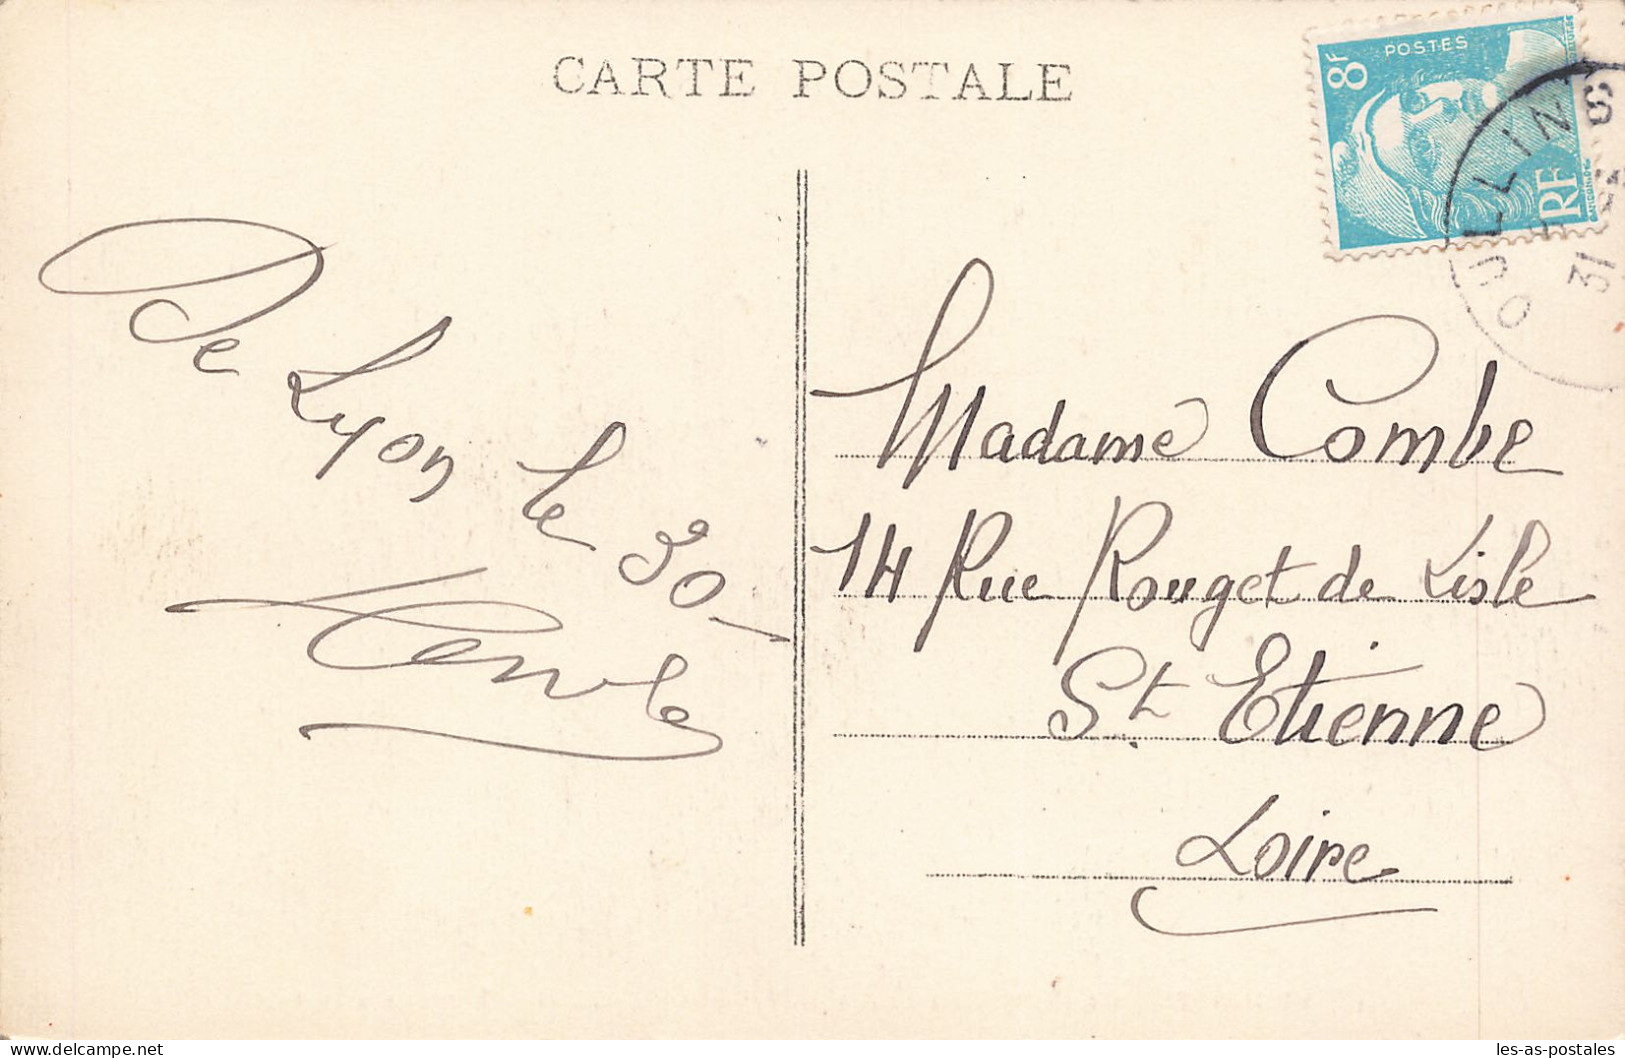 CARTE POSTALE
POSTES
8F
RF
OULLINS
31
De Lyon le 30
Madame Combe
14 Rue Rouget de Lisle
St. Etienne
Loire
delcampe.net
les-as-postales